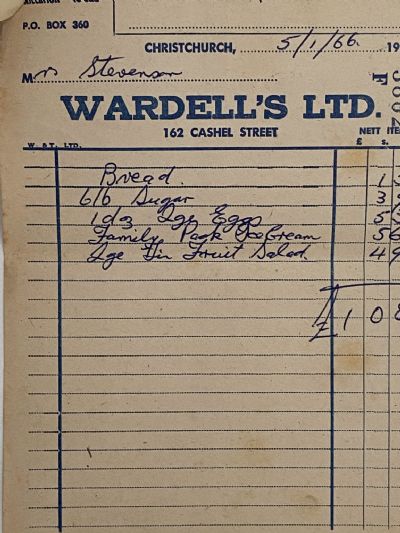 P.O. BOX 360
CHRISTCHURCH, 5/1/66. 19
Mr Stevenson
WARDELL'S LTD.
162 CASHEL STREET
F
NETT ITE
W. & T. LTD.
£ s.
Bread. 1
6 lb Sugar 3
1 dz Lge Eggs 5
Family Pack Ice Cream 5
Lge Tin Fruit Salad. 4 9
£1 0 8